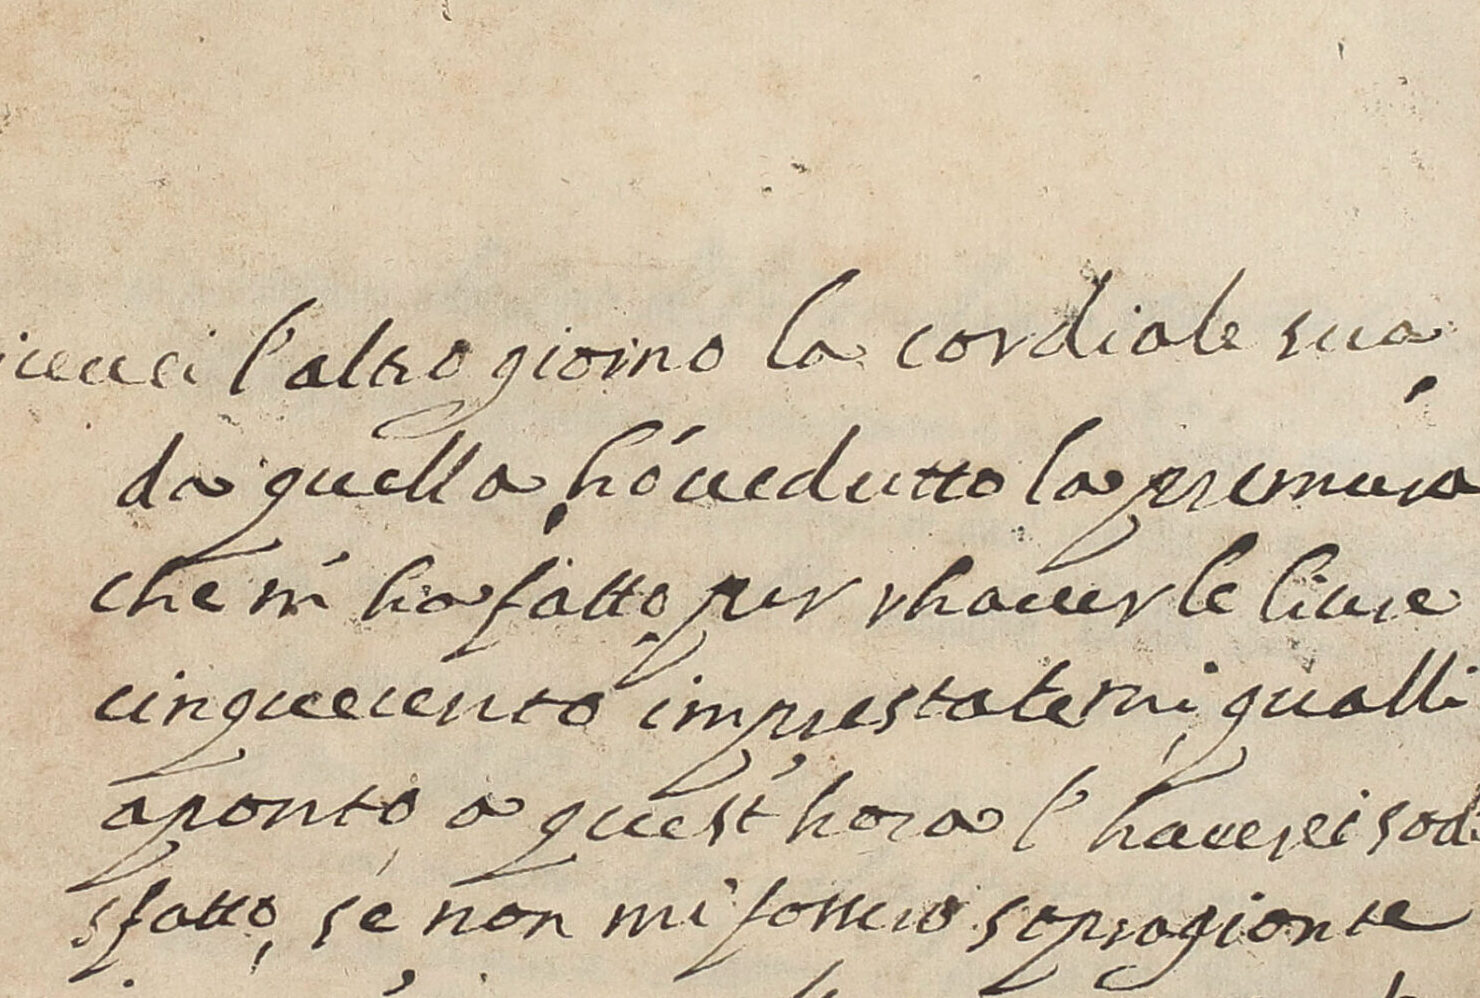 l'altro giorno la cordiale sua
da quella, hó ueduto la premura
che m' ha fatto per rhauer le liure
cinquecento imprestatemi, qualli
aponto, a quest' hora l' hauerei sodi
sfatto, se non mi fossero sopragionte